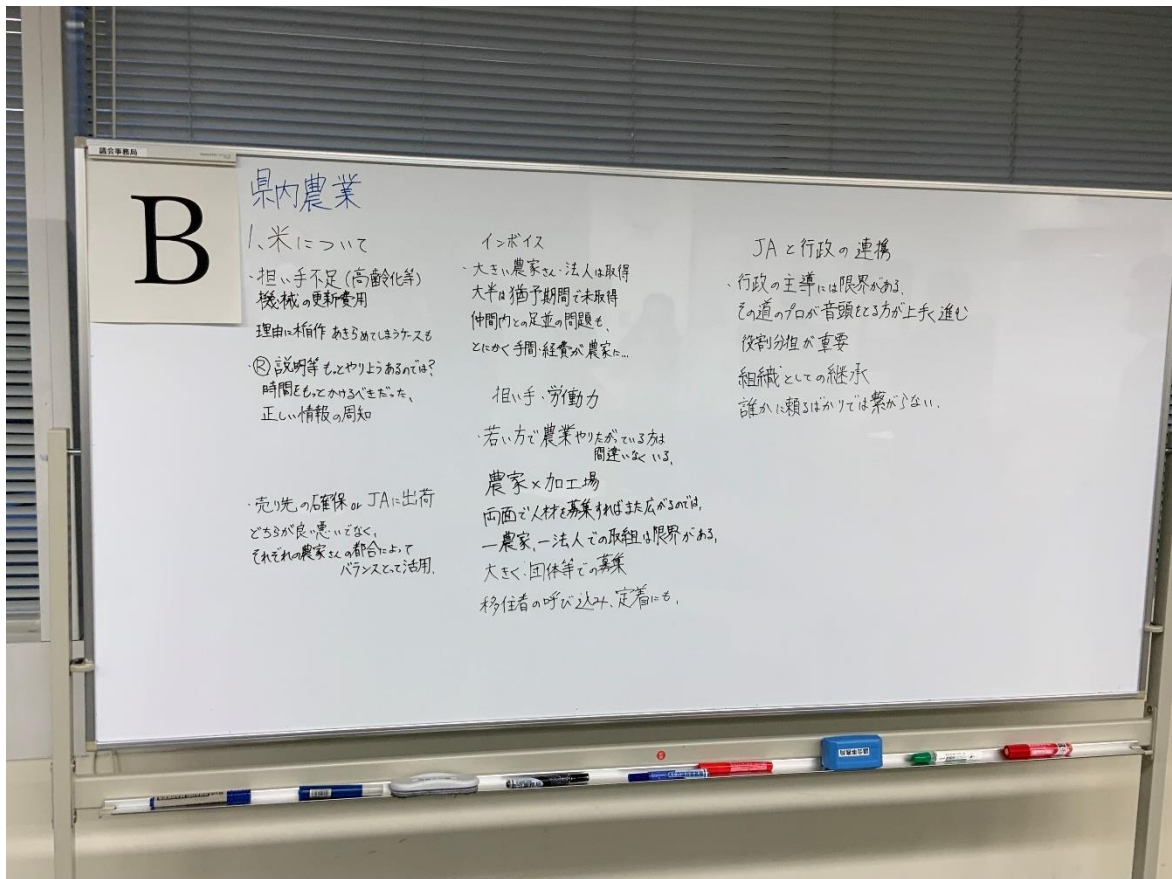 議会事務局
B
県内農業
1、米について
・担い手不足(高齢化等)
機械の更新費用
理由に稲作 あきらめてしまうケースも
・Ⓡ 説明等 もっとやりようあるのでは?
時間をもっとかけるべきだった、
正しい情報の周知
・売り先の確保 or JAに出荷
どちらが良い悪いでなく、
それぞれの農家さんの都合によって
バランスとって活用、
インボイス
・大きい農家さん・法人は取得
大半は猶予期間で未取得
仲間内との足並の問題も、
とにかく手間・経費が農家に…
担い手・労働力
・若い方で農業やりたがっている方は
間違いなくいる、
農家×加工場
両面で人材を募集すればまた広がるのでは、
一農家、一法人での取組は限界がある、
大きく・団体等での募集
移住者の呼び込み、定着にも、
JAと行政の連携
・行政の主導には限界がある、
その道のプロが音頭をとる方が上手く進む
役割分担が重要
組織としての継承
誰かに頼るばかりでは繋がらない、
議会事務局